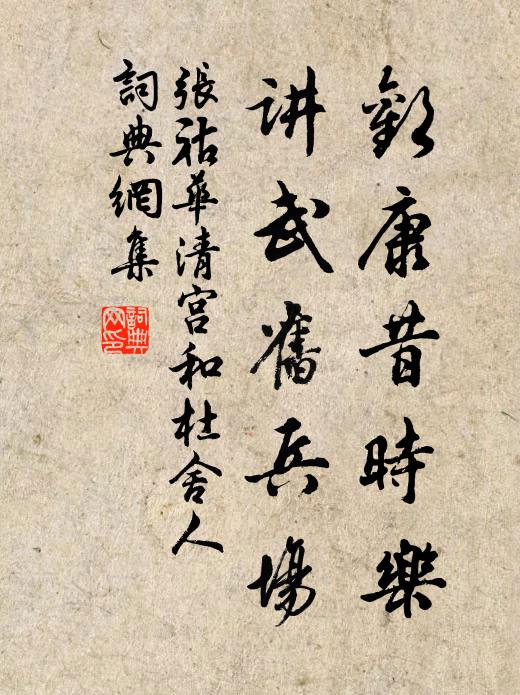 歡康昔時樂
讲武舊兵場
張祜華清宮和杜舍人
詞典網集
詞典
网印